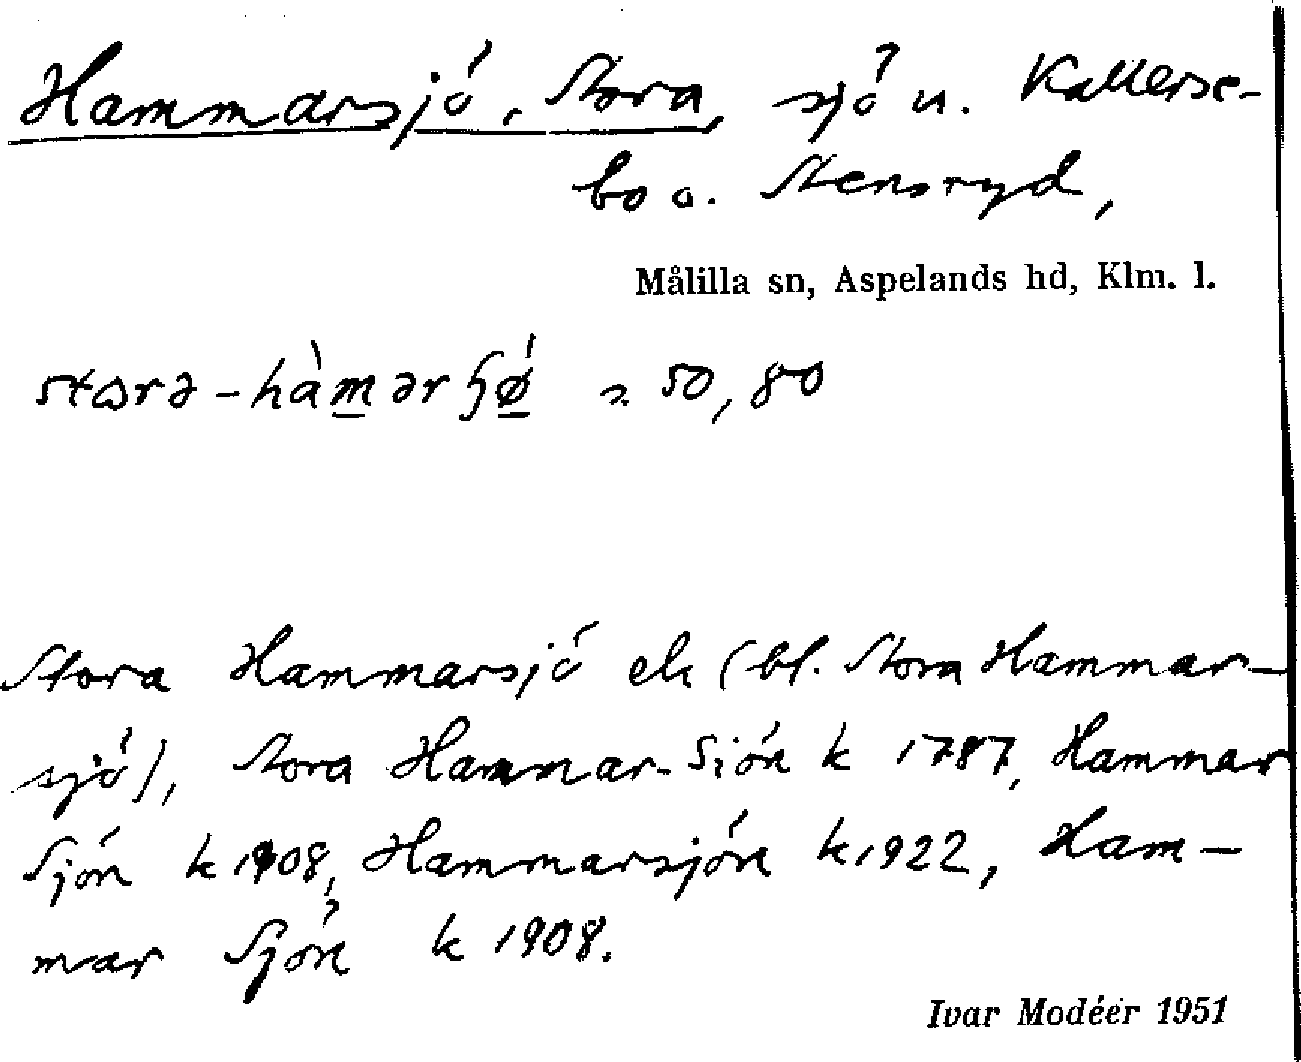 Hammarsjö, Stora, sjö u. Kallerse-
bo o. Stensryd,
Målilla sn, Aspelands hd, Klm. l.
50,80
Stora Hammarsjö ek (bl. Stora Hammar-
sjö), Stora Hammar-Siön k 1787, Hammar
Sjön k 1908, Hammarsjön k 1922, Ham-
mar Sjön k 1908.
Ivar Modéer 1951